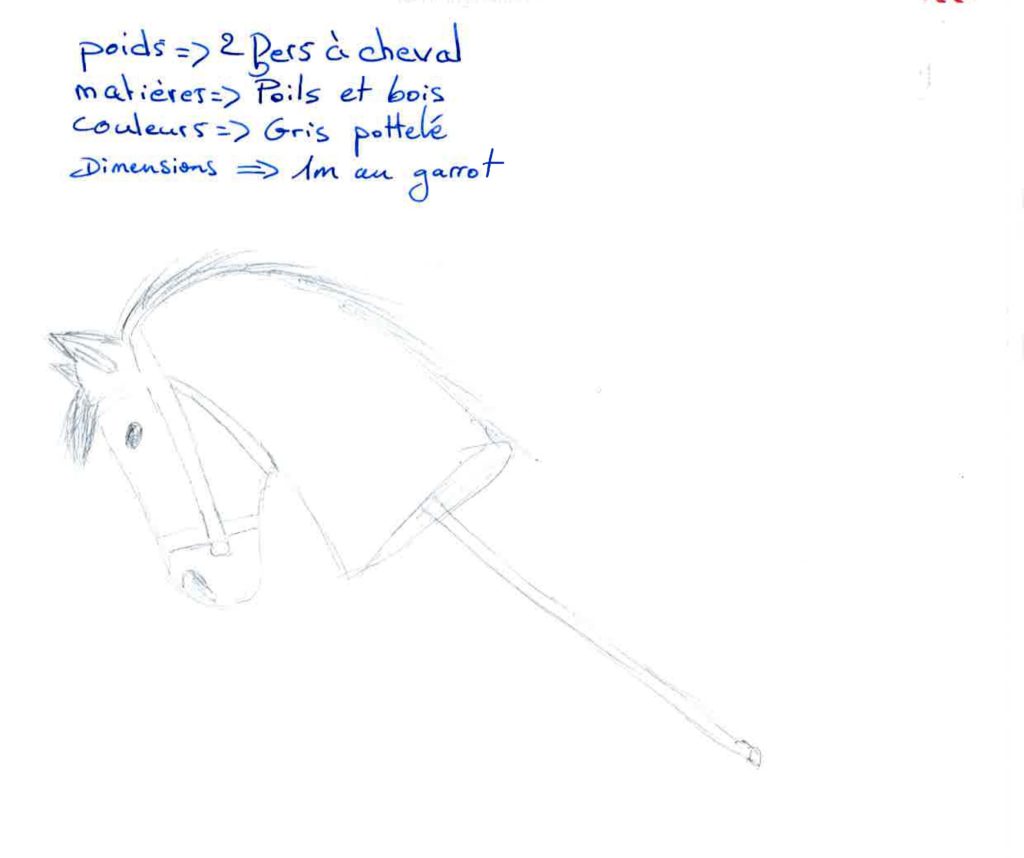 poids => 2 Pers à cheval
matières => Poils et bois
couleurs => Gris pottelé
Dimensions => 1m au garrot